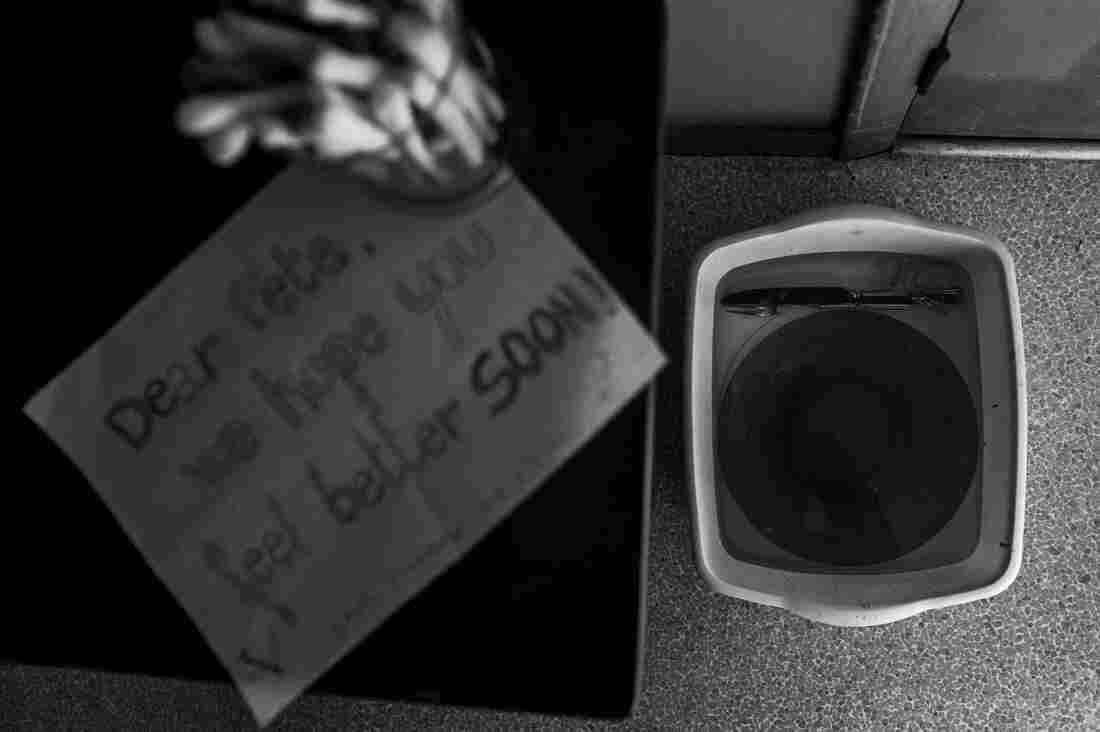 Dear
we hope you
feel better SOON!